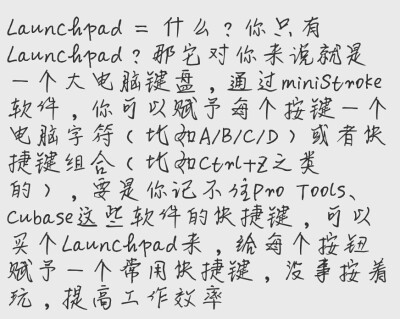 Launchpad = 什么？你只有
Launchpad？那它对你来说就是
一个大电脑键盘，通过miniStroke
软件，你可以赋予每个按键一个
电脑字符（比如A/B/C/D）或者快
捷键组合（比如Ctrl+Z之类
的），要是你记不住Pro Tools、
Cubase这些软件的快捷键，可以
买个Launchpad来，给每个按钮
赋予一个常用快捷键，没事按着
玩，提高工作效率